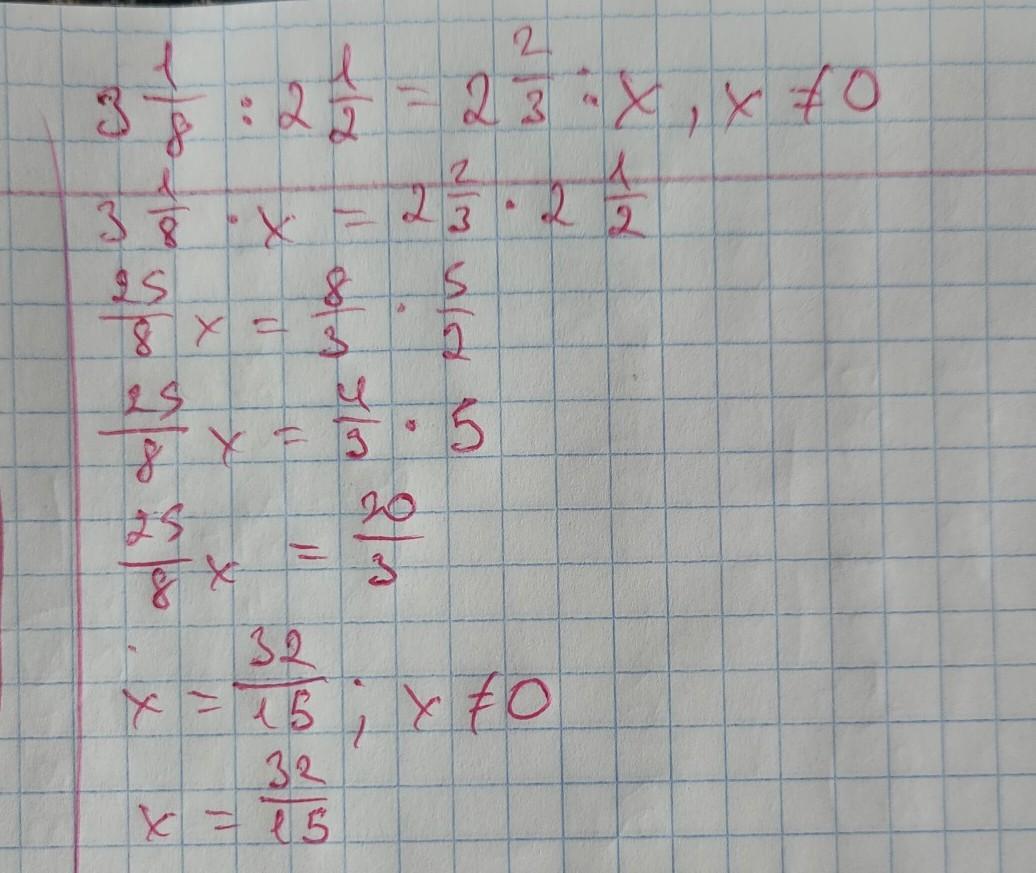 3 1/8 : 2 1/2 = 2 2/3 : x , x ≠ 0
3 1/8 · x = 2 2/3 · 2 1/2
25/8 x = 8/3 · 5/2
25/8 x = 4/3 · 5
25/8 x = 20/3
x = 32/15 ; x ≠ 0
x = 32/15